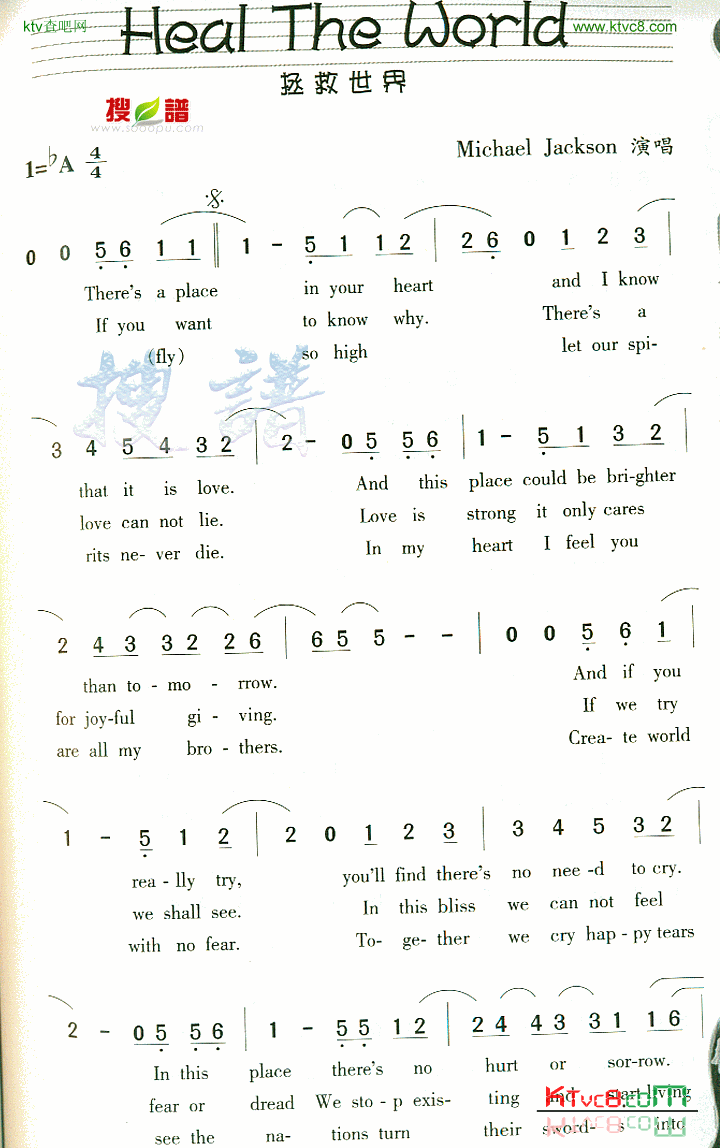 ktv查吧网
Heal The World
www.ktvc8.com
拯救世界
搜譜
www.sooopu.com
Michael Jackson 演唱
1=♭A 4/4
0 0 5 6 1 1 1 - 5 1 1 2 | 2 6 0 1 2 3 |
There's a place in your heart and I know
If you want to know why. There's a
(fly) so high let our spi-
搜 譜
3 4 5 4 3 2 | 2 - 0 5 5 6 | 1 - 5 1 3 2 |
that it is love. And this place could be bri-ghter
love can not lie. Love is strong it only cares
rits ne- ver die. In my heart I feel you
2 4 3 3 2 2 6 | 6 5 5 - - | 0 0 5 6 1 |
than to - mo - rrow. And if you
for joy-ful gi - ving. If we try
are all my bro - thers. Crea- te world
1 - 5 1 2 | 2 0 1 2 3 | 3 4 5 3 2 |
rea - lly try, you'll find there's no nee -d to cry.
we shall see. In this bliss we can not feel
with no fear. To- ge- ther we cry hap - py tears
2 - 0 5 5 6 | 1 - 5 5 1 2 | 2 4 4 3 3 1 1 6 |
In this place there's no hurt or sor-row.
fear or dread We sto - p exis- ting and start living
KTvc8.com
see the na- tions turn their sword- s into